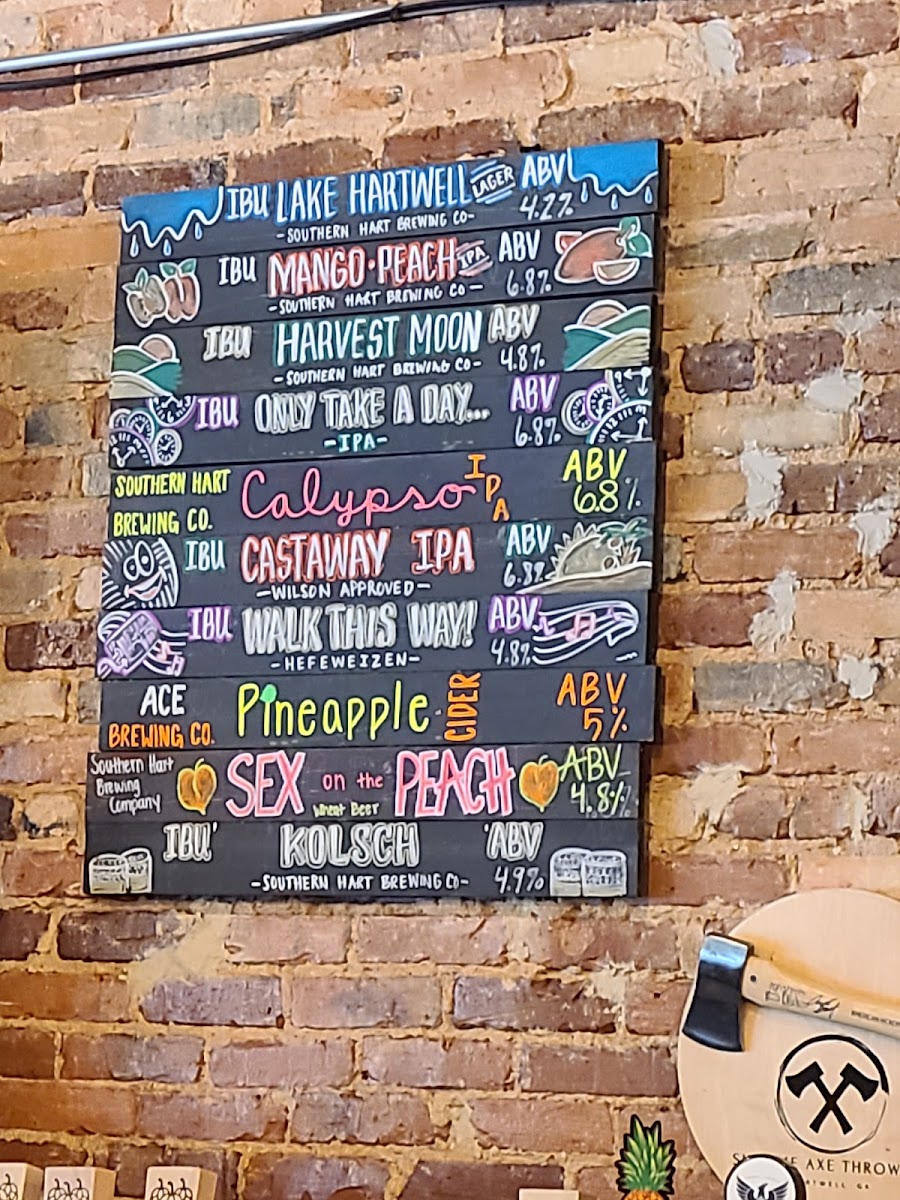 IBU LAKE HARTWELL LAGER ABV
-SOUTHERN HART BREWING CO- 4.2%
IBU MANGO•PEACH IPA ABV
-SOUTHERN HART BREWING CO- 6.8%
IBU HARVEST MOON ABV
-SOUTHERN HART BREWING CO- 4.8%
IBU ONLY TAKE A DAY... ABV
-IPA- 6.8%
SOUTHERN HART BREWING CO. Calypso IPA ABV 6.8%
IBU CASTAWAY IPA ABV
-WILSON APPROVED- 6.8%
IBU WALK THIS WAY! ABV
-HEFEWEIZEN- 4.8%
ACE Pineapple CIDER ABV
BREWING CO. 5%
Southern Hart Brewing Company SEX on the PEACH ABV
Wheat Beer 4.8%
IBU' KOLSCH 'ABV
-SOUTHERN HART BREWING CO- 4.9%
AXE THROW